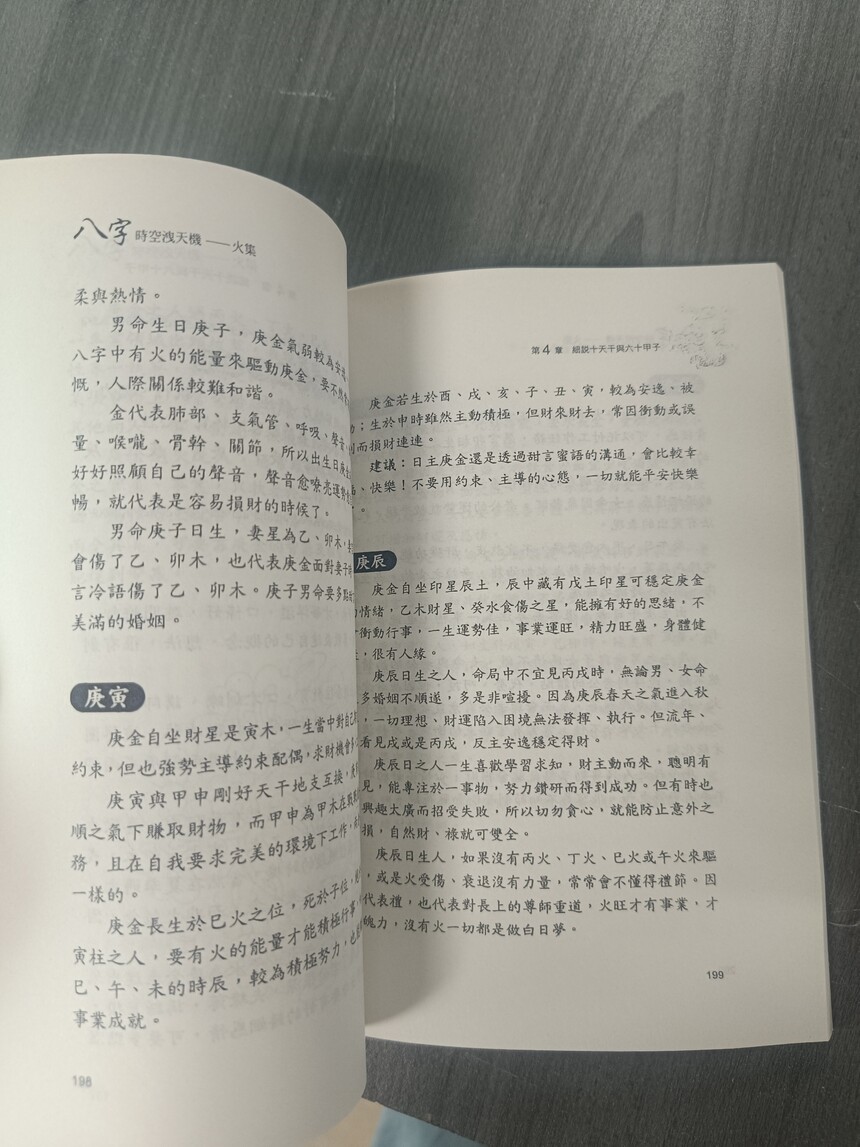 八字 時空洩天機——火集
柔與熱情。
男命生日庚子，庚金氣弱較為安逸，
八字中有火的能量來驅動庚金，要不然
慨，人際關係較難和諧。
金代表肺部、支氣管、呼吸、聲音、
量、喉嚨、骨幹、關節，所以出生日庚
好好照顧自己的聲音，聲音愈嘹亮運勢
暢，就代表是容易損財的時候了。
男命庚子日生，妻星為乙、卯木，
會傷了乙、卯木，也代表庚金面對妻子
言冷語傷了乙、卯木。庚子男命要多
美滿的婚姻。
庚寅
庚金自坐財星是寅木，一生當中對自己
約束，但也強勢主導約束配偶，求財機會多
庚寅與甲申剛好天干地支互換，
順之氣下賺取財物，而甲申為甲木在
務，且在自我要求完美的環境下工作，
一樣的。
庚金長生於巳火之位，死於子位，
寅柱之人，要有火的能量才能積極行事，
巳、午、未的時辰，較為積極努力，也
事業成就。
198
第4章 細說十天干與六十甲子
庚金若生於酉、戌、亥、子、丑、寅，較為安逸、被
；生於申時雖然主動積極，但財來財去，常因衝動或誤
而損財連連。
建議：日主庚金還是透過甜言蜜語的溝通，會比較幸
、快樂！不要用約束、主導的心態，一切就能平安快樂
。
庚辰
庚金自坐印星辰土，辰中藏有戊土印星可穩定庚金
情緒，乙木財星、癸水食傷之星，能擁有好的思緒，不
衝動行事，一生運勢佳，事業運旺，精力旺盛，身體健
，很有人緣。
庚辰日生之人，命局中不宜見丙戌時，無論男、女命
多婚姻不順遂，多是非喧擾。因為庚辰春天之氣進入秋
，一切理想、財運陷入困境無法發揮、執行。但流年、
看見戌或是丙戌，反主安逸穩定得財。
庚辰日之人一生喜歡學習求知，財主動而來，聰明有
見，能專注於一事物，努力鑽研而得到成功。但有時也
興趣太廣而招受失敗，所以切勿貪心，就能防止意外之
損，自然財、祿就可雙全。
庚辰日生人，如果沒有丙火、丁火、巳火或午火來驅
，或是火受傷、衰退沒有力量，常常會不懂得禮節。因
代表禮，也代表對長上的尊師重道，火旺才有事業，才
魄力，沒有火一切都是做白日夢。
199